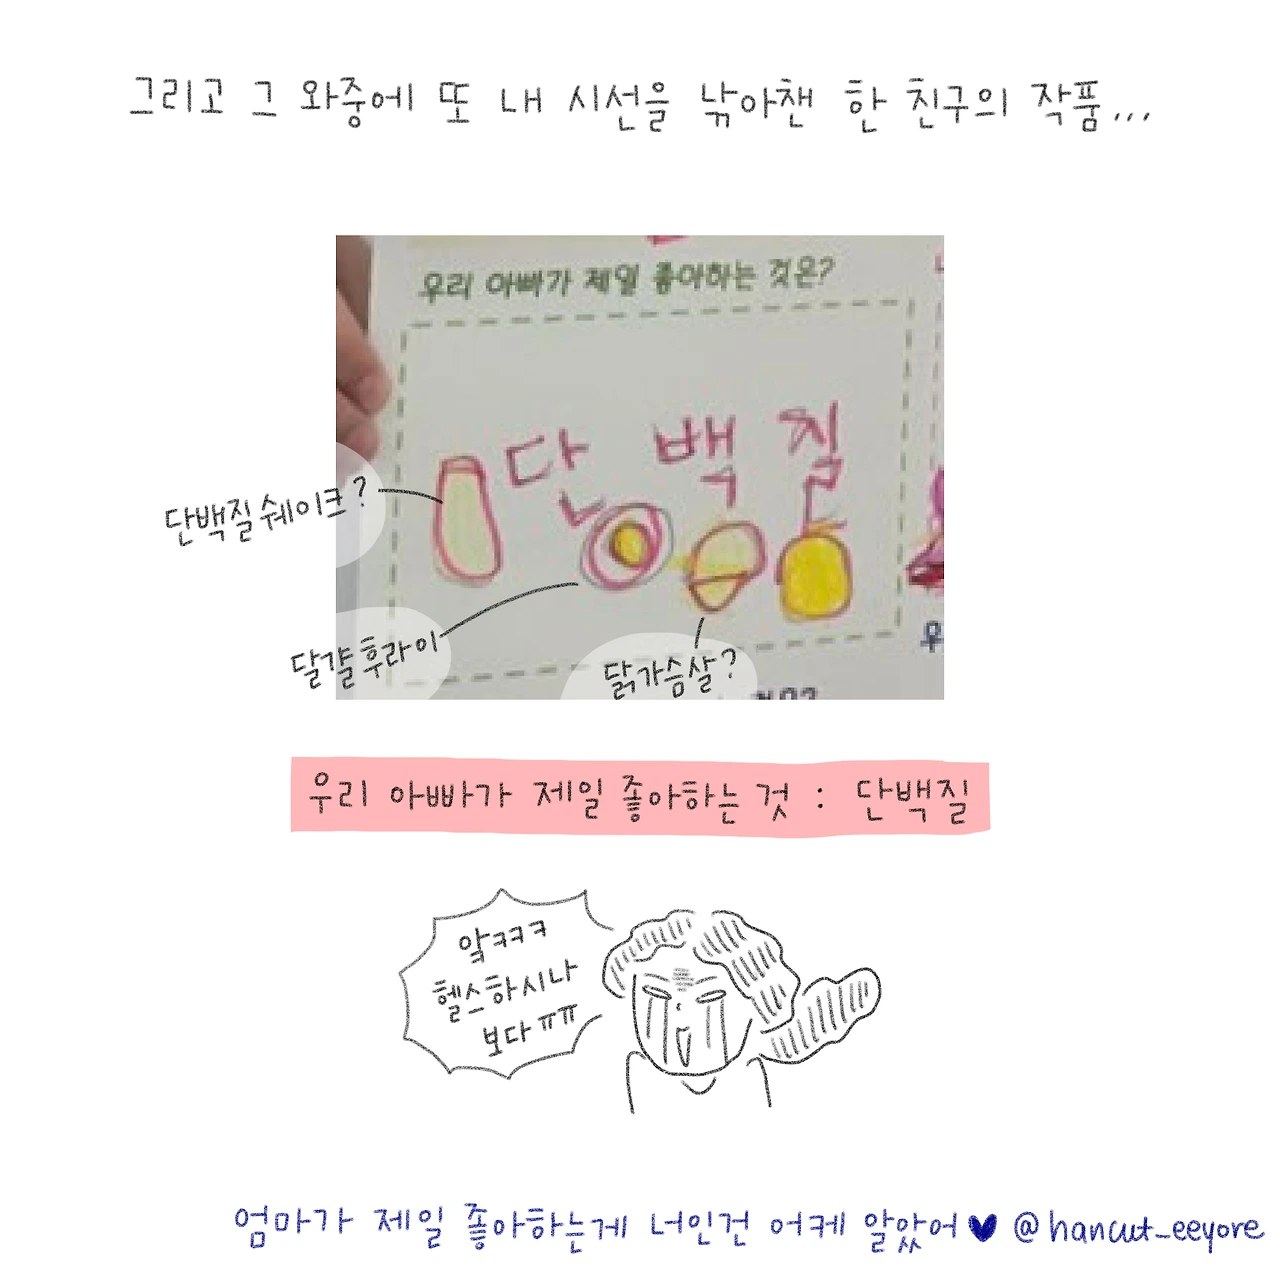 그리고 그 와중에 또 내 시선을 낚아챈 한 친구의 작품...
우리 아빠가 제일 좋아하는 것은?
단백질
단백질쉐이크?
달걀후라이
닭가슴살?
우리 아빠가 제일 좋아하는 것 : 단백질
앜ㅋㅋㅋ
헬스하시나
보다ㅠㅠ
엄마가 제일 좋아하는게 너인건 어케 알았어♥ @hancut_eeyore